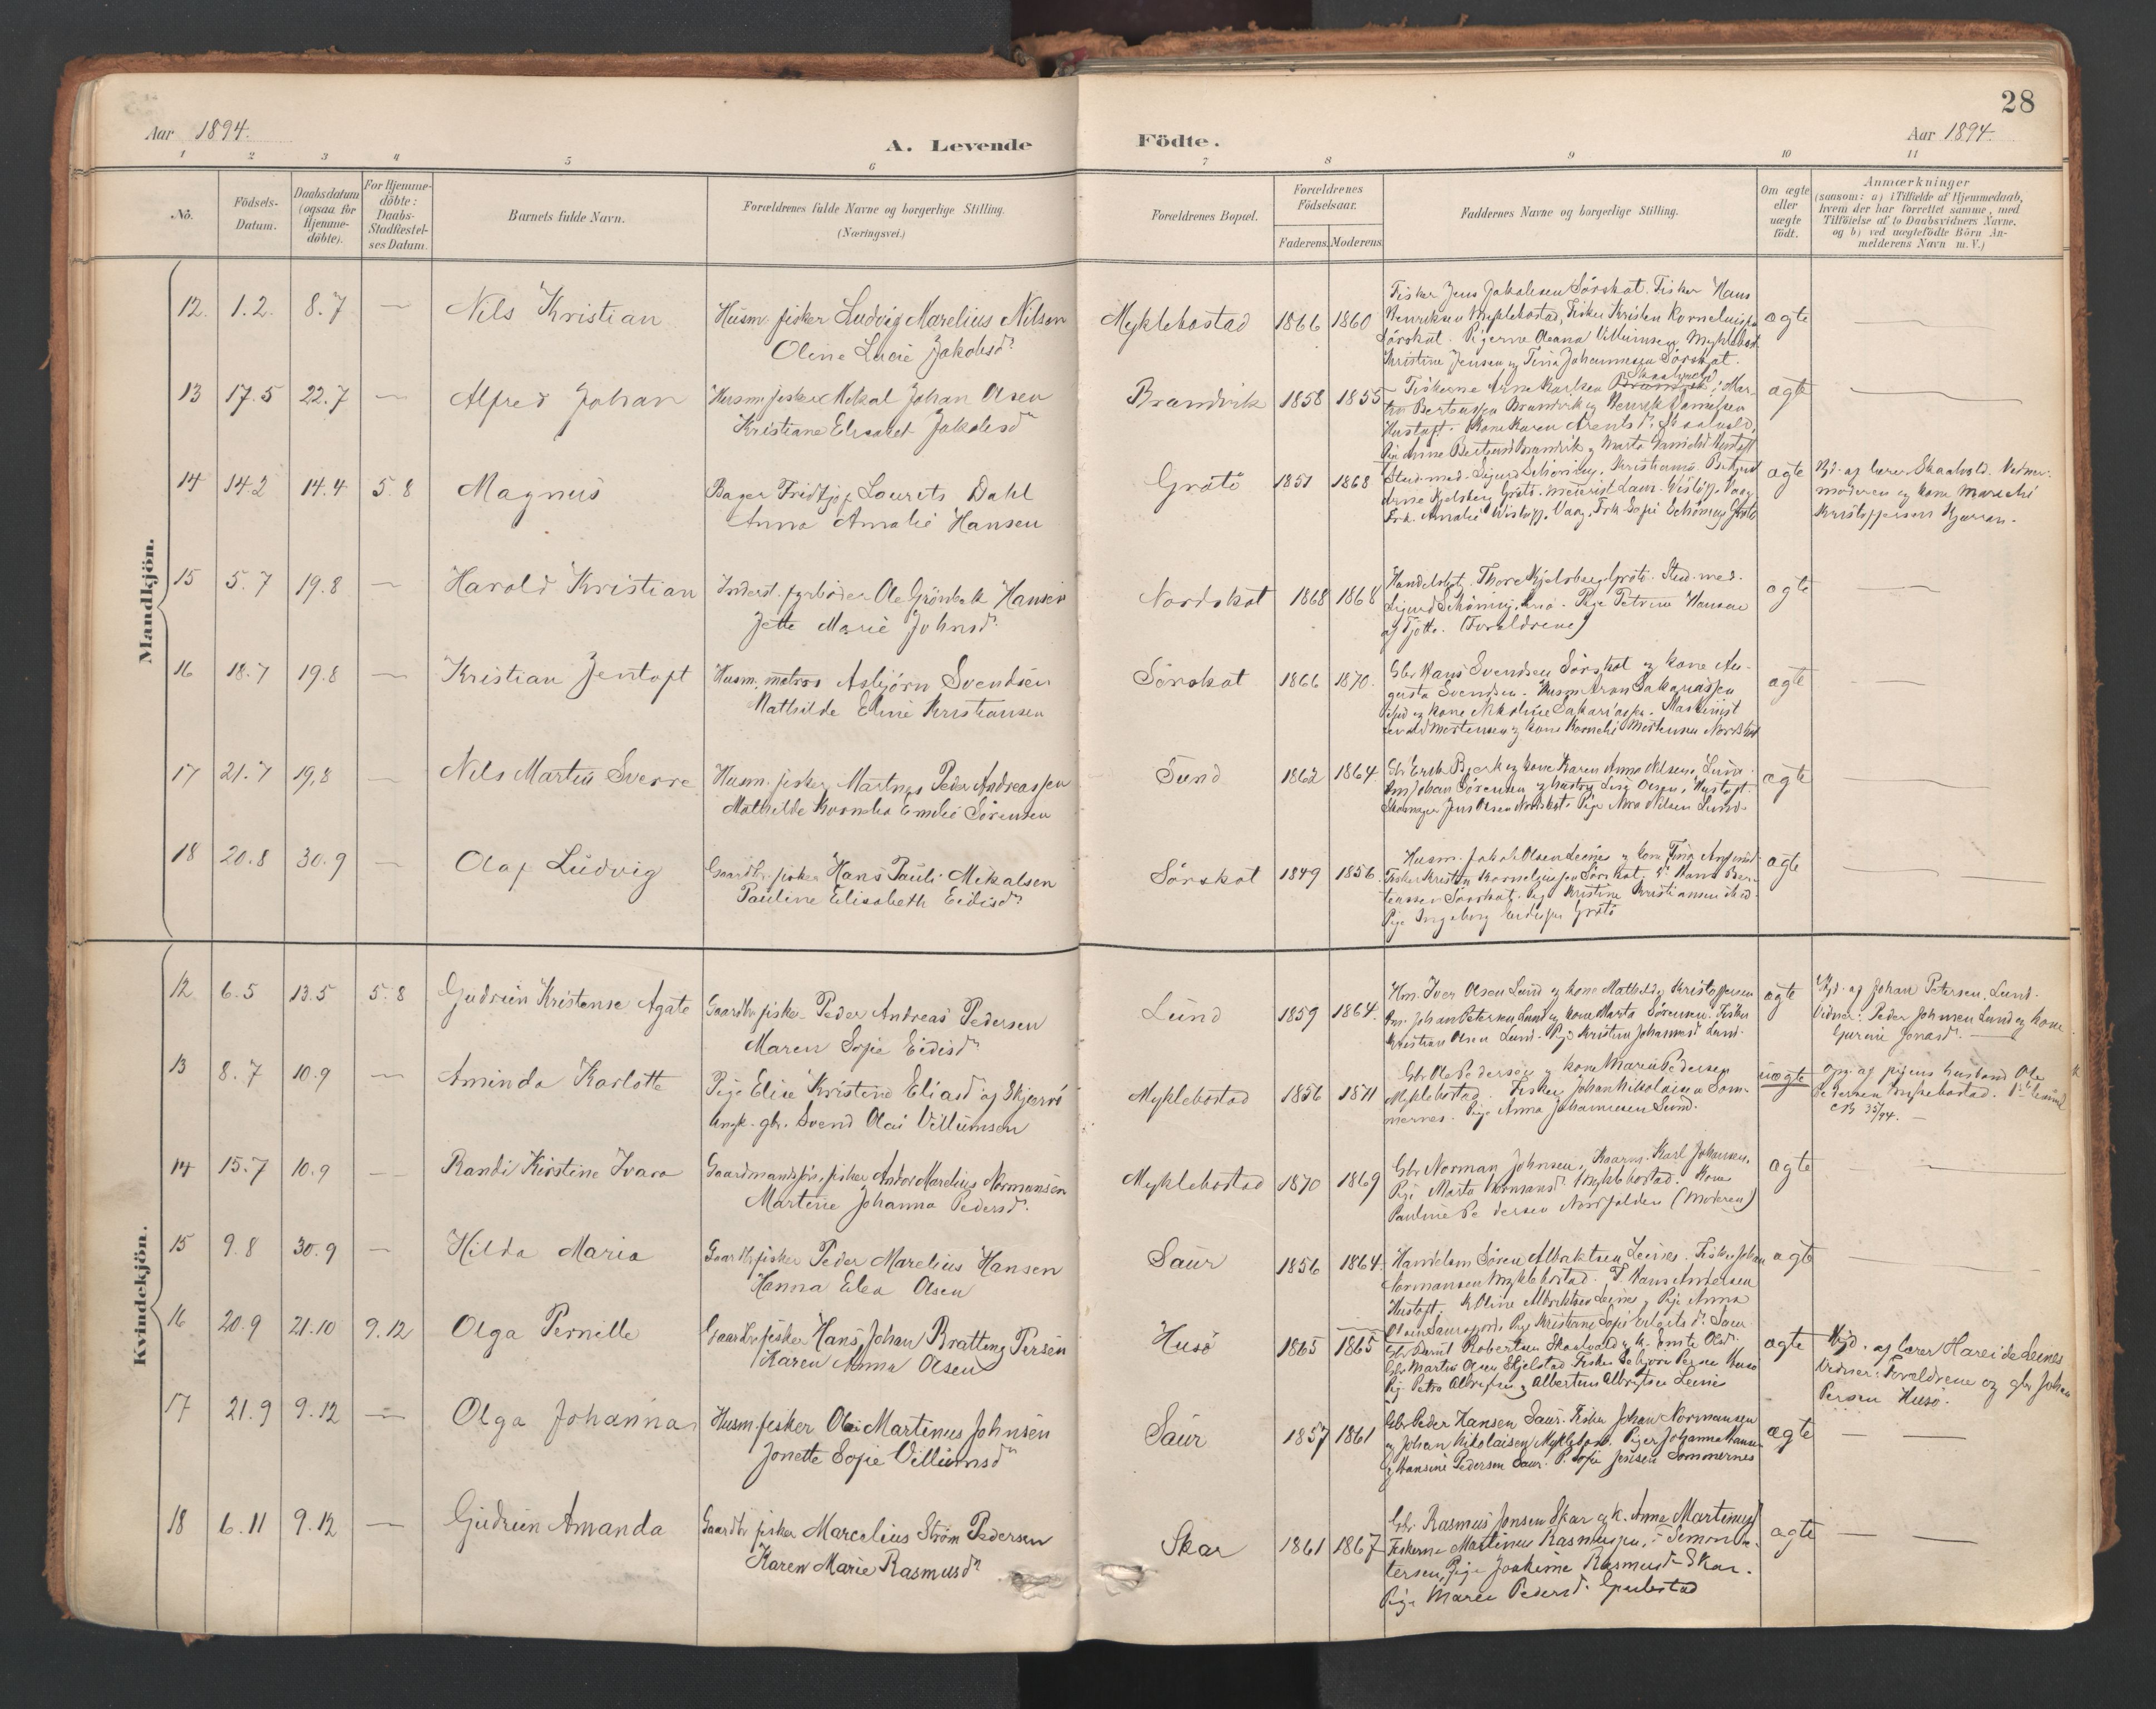 28
Aar 1894.
A. Levende Födte.
Aar 1894.
1 2 3 4 5 6 7 8 9 10 11
No.
Födsels-Datum.
Daabsdatum (ogsaa for Hjemme-döbte).
For Hjemme-döbte: Daabs-Stadfestel-ses Datum.
Barnets fulde Navn.
Forældrenes fulde Navne og borgerlige Stilling.
(Næringsvei.)
Forældrenes Bopæl.
Forældrenes Födselsaar.
Faderens. Moderens.
Faddernes Navne og borgerlige Stilling.
Om ægte eller uægte födt.
Anmærkninger
(saasom: a) i Tilfælde af Hjemmedaab,
hvem der har forrettet samme, med
Tilföielse af to Daabsvidners Navne.
og b) ved uægtefödte Börn An-
melderens Navn m. V.)
Mandkjön.
12. 1.2. 8.7 — Nils Kristian
Husm. fisker Ludvig Marelius Nilsen
Oline Lucie Jakobsdr
Myklebostad 1866 1860
Fisker Jens Jakobsen Sörskot. Fisker Hans
Henriksen Myklebostad, Fisker Kristen
Sörskot. Pigerne Oleana Villumsen Myklebost
Kristine Jensen og Tina Johannesen Sörskot.
ægte —
13 17.5 22.7 — Alfred Johan
Husm. fisker Mikal Johan Olsen
Kristiane Elisabet Jakobsdr
Brandvik 1858 1855
Fiskerne Arne Karlsen Skaalvold, Mar-
Brandvik og Henrik Danielsen
Hustoft. Kone Karen
ægte —
14 14.2 14.4 5.8 Magnus
Bager Fridtjof Laurits Dahl
Anna Amalie Hansen
Grötö 1851 1868
Stud. med. Sigurd Schöning, Kristiania.
Arne Kjelsberg Grötö.
Frk. Amalie Wislöff, Vaag, Frk. Sofie Schöning Grötö
ægte
Hjd. af lærer Skaahold. Vidner:
moderen og kone
Kristoffersen
15 5.7 19.8 — Harold Kristian
Inderst. fyrböder Ole Grönbek Hansen
Jette Marie Johnsdr
Nordskot 1868 1868
Thore Kjelsberg Grötö. Stud. med.
Sigurd Schöning, Pige Petrine Hansen
af Tjötta. (Forældrene)
ægte —
16 18.7 19.8 — Kristian Jentoft
Husm. matros Asbjörn Svendsen
Mathilde Eline Kristiansen
Sörskot 1866 1870.
Gbr Hans Svendsen Sörskot og kone Au-
gusta Svendsen. Husm Aron Sakariassen
og kone Nikoline Sakariassen. Maskinist
Mortensen og kone Kornelie Mortensen Nordskot
ægte —
17 21.7 19.8 — Nils Martin Sverre
Husm. fisker Martinus Peder Andreassen
Mathilde Kornelia Emilie Sörensen
Sund 1862 1864
Gbr Erik Bjerk og kone Karen Anna Nilsen, Lund
Johan Sörensen og hustru Lise Olsen, Hustoft
Skomager Jens Olsen Nordskot. Pige Nora Nilsen Lund.
ægte —
18 20.8 30.9 — Olaf Ludvig
Gaardbr. fisker Hans Pauli Mikalsen
Pauline Elisabeth Eidisdr
Sörskot 1849 1856.
Husm. Jakob Olsen Leines og kone Tina
Fisker Kristen Korneliussen Sörskot, Hans Ber-
Sörskot. Pige Kristine Kristiansen
Pige Ingeborg Grötö
ægte —
Kvindekjön.
12 6.5 13.5 5.8 Gudrun Kristense Agate
Gaardbr. fisker Peder Andreas Pedersen
Maren Sofie Eidisdr
Lund 1859 1864.
Hm. Iver Olsen Lund og kone Mathilde Kristoffersen
Johan Petersen Lund og kone Marta Sörensen. Fisker
Kristian Olsen Lund. Pige Kristine Johannesd. Lund.
ægte
Hjd. af Johan Petersen, Lund.
Vidner: Peder Johnsen Lund og kone
Gurine Jonasd. —
13 8.7 10.9 — Aminda Karlotte
Pige Elise Kristine Eliasd. af Skjervö
Ungk. gbr. Svend Olai Villumsen
Myklebostad 1856 1871
Gbr Ole Pedersen og kone Marie Pedersen
Myklebostad. Fisker Johan Nikolaisen Som-
mernes. Pige Anna Johannesen Sund.
uægte
Opg. af pigens husbond Ole
Pedersen Myklebostad.
14 15.7 10.9 — Randi Kirstine Ivara
Gaardmandssön, fisker Andor Marelius Normansen
Martine Johanna Pedersdr.
Myklebostad 1870 1869
Gbr Norman Johnsen, Karl Johansen,
Pige Marta Normansd. Myklebostad. Kone
Pauline Pedersen Nordfolden (Moderen)
ægte —
15 9.8 30.9 — Hilda Maria
Gaardbr. fisker Peder Marelius Hansen
Hanna Elea Olsen
Saur 1856 1864.
Handelsm Sören Albriktsen Leines. Fisker Johan
Normansen Myklebostad. F. Hans Andersen
Hustoft. K. Oline Albriktsen Leines, Pige Anna
Olsen Pige Kristiane Sofie
ægte —
16 20.9 21.10 9.12 Olga Pernille
Gaardbr fisker Hans Johan Bratteng Persen
Karen Anna Olsen
Husö 1865 1865
Gbr Robertsen Skaalvold og k. Olsd.
Gbr Martin Olsen Skjelstad Fisker Persen Husö
Pige Petra Albrigtsen og Albertine Albrigtsen Leines
ægte
Hjd. af lærer Hareide Leines
Vidner: Forældrene og gbr Johan
Persen Husö.
17 21.9 9.12 — Olga Johanna
Husm. fisker Olai Martinus Johnsen
Jonette Sofie Villumsdr
Saur 1857 1861
Gbr Peder Hansen Saur. Fisker Johan Normansen
og Johan Nikolaisen Myklebost. Piger Johanna Hansen
og Hansine Pedersen Saur. P. Sofie Jensen Sommernes
ægte — —
18 6.11 9.12 — Gudrun Amanda
Gaardbr fisker Marcelius Ström Pedersen
Karen Marie Rasmusdr
Skar 1861 1867
Gbr. Rasmus Jonsen Skar og k. Anne Martinusd
Fiskerne Martinus Rasmussen, Simon Pe-
tersen, Pige Joakime Rasmusd. Skar.
Pige Maren Pedersd.
ægte — —